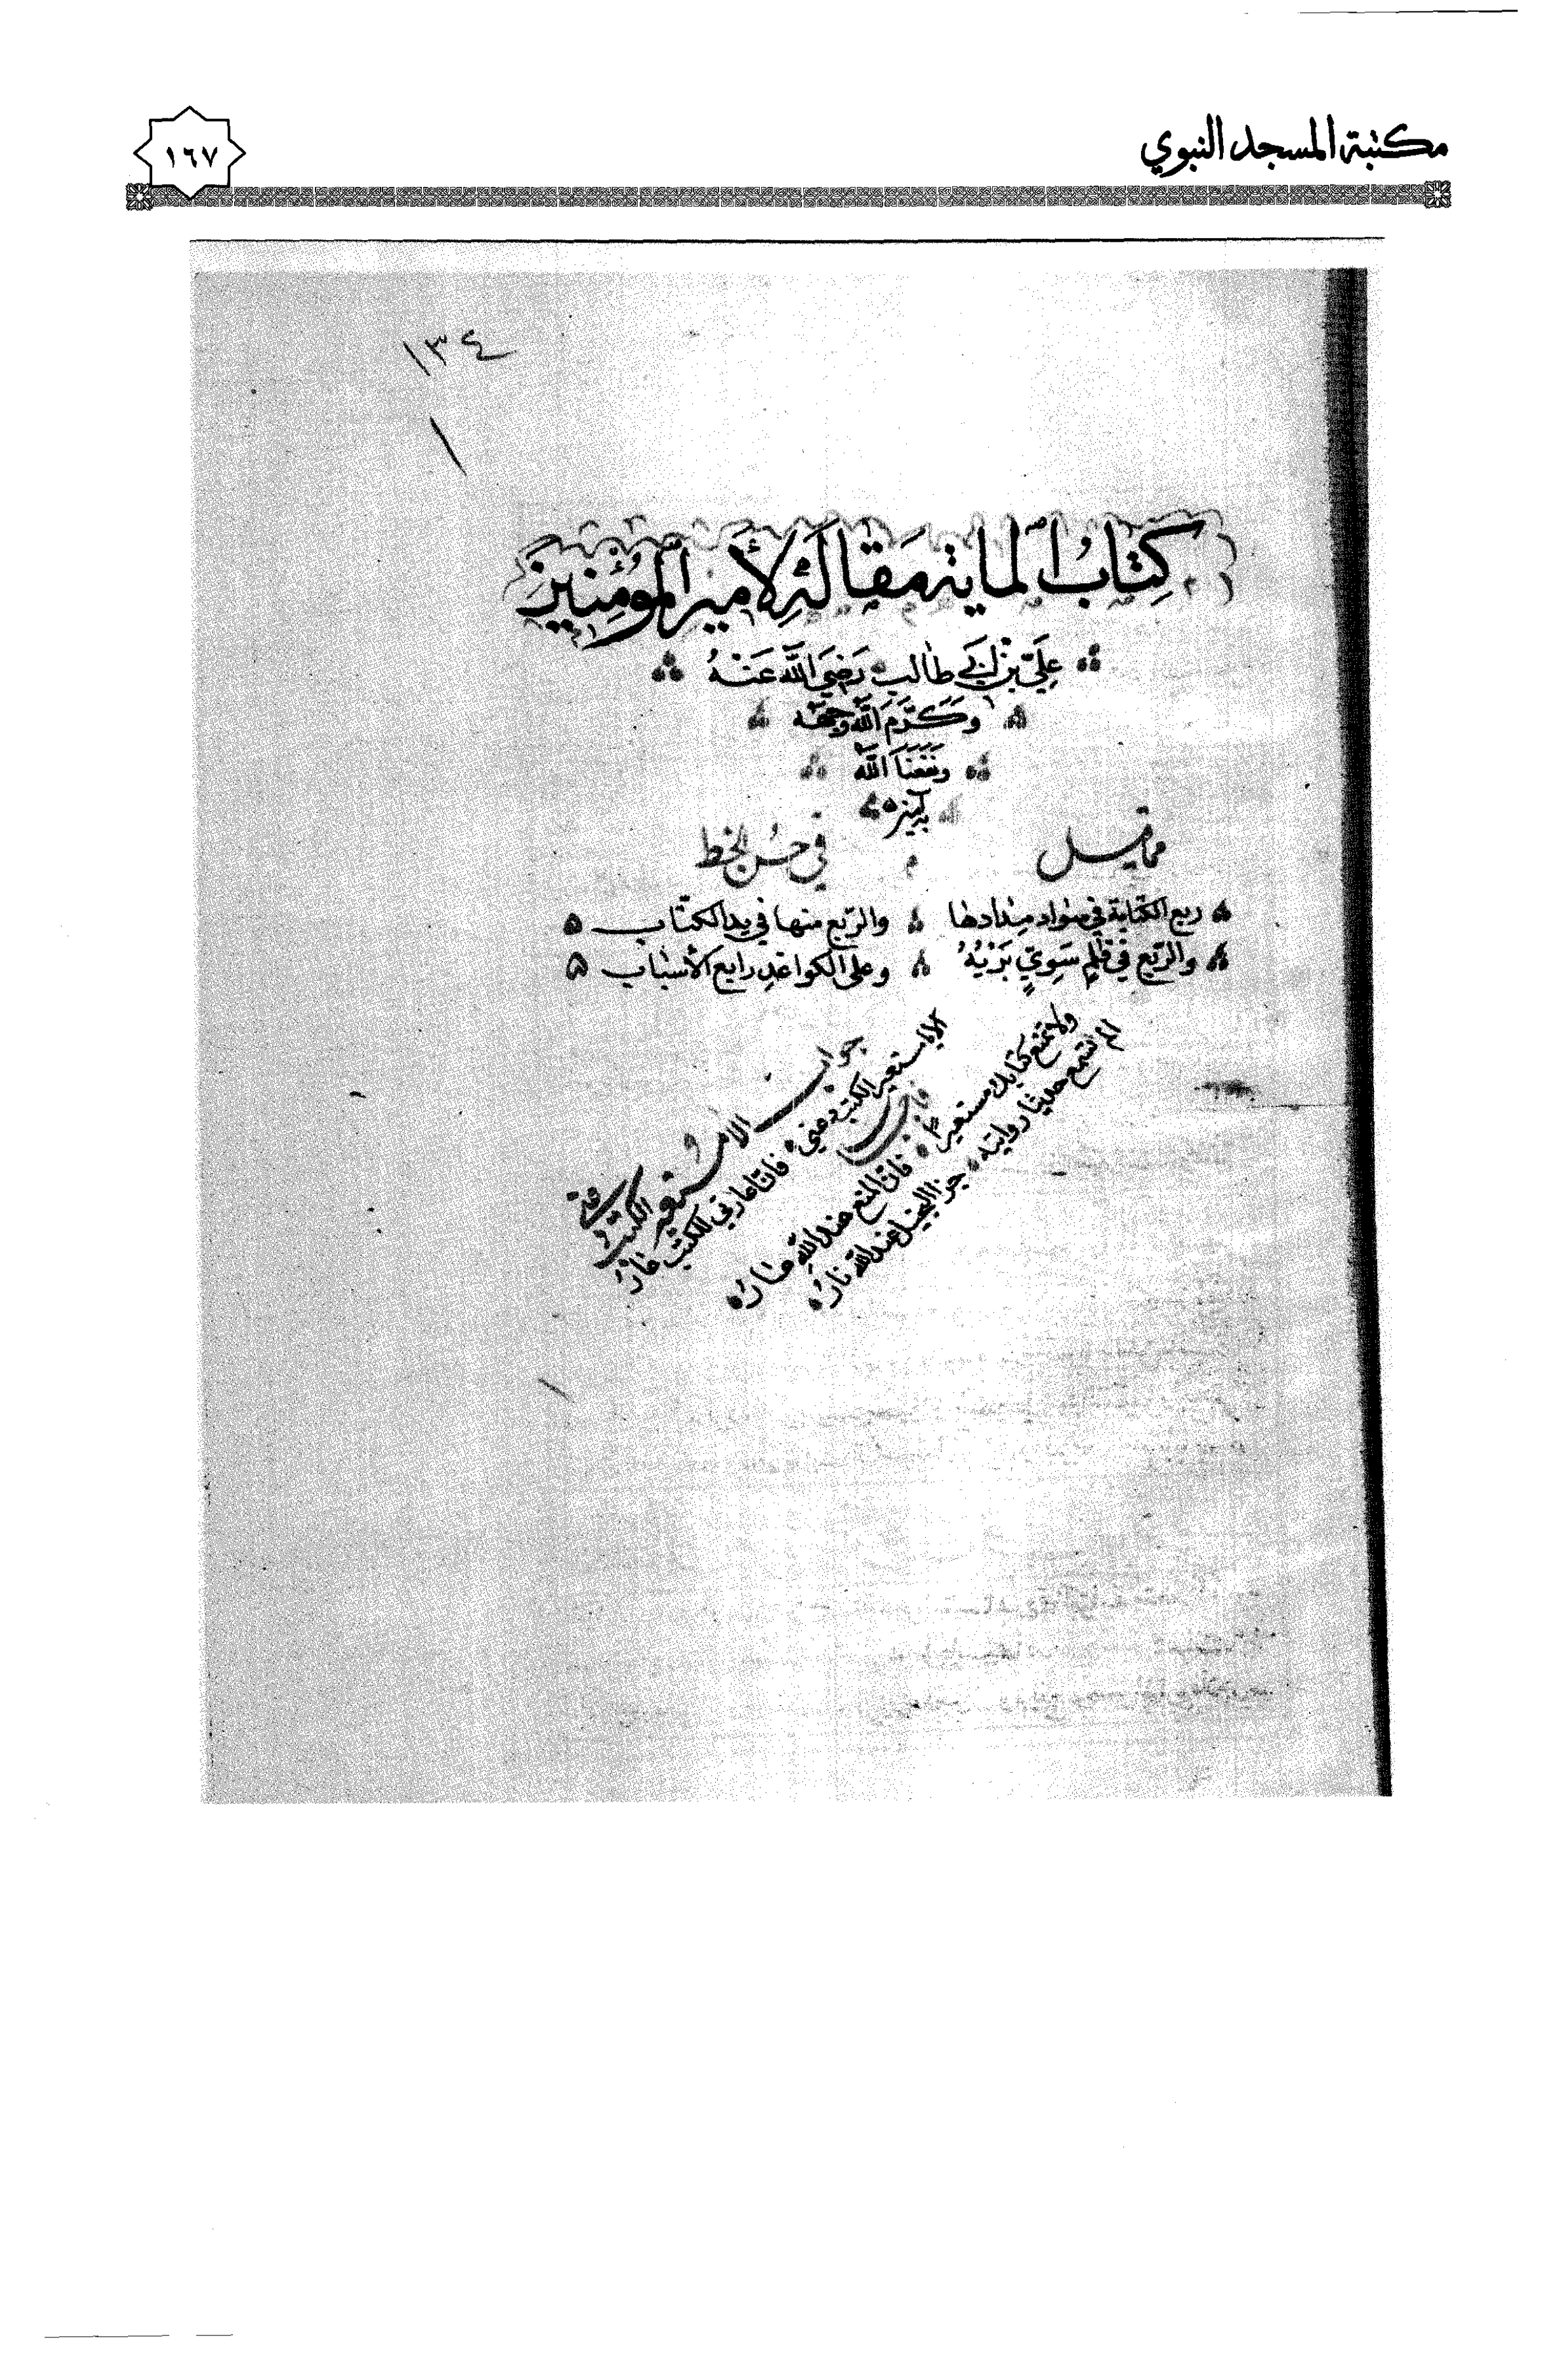 مكتبة المسجد النبوي
١٦٧
١٣٤
١
كِتَابُ الماية مَقَالَة لأمير المُؤمِنين
عَلِيّ بن ابي طالب رَضِيَ اللَّه عَنْهُ
وَكَرَّمَ اللَّه وَجهَه
ونَفَعنَا اللَّه
به
مما قيل في حُسن الخط
ربع الكتابة في سواد مدادها والرّبع منها في يد الكتّاب
والرّبع في قلمٍ سَوِيٍّ بَرْيُهُ وعلى الكواغدِ رابع الأسباب
الا يا مستعير الكتب دعني فان اعارتي للكتب عارُ
جواب
الا يا مستعير الكتب
ولا تمنع كتابك مستعيرًا فان المنع عند اللَّه عارُ
الم تسمع حديثا روايته جزا البخل عند اللّه نارُ